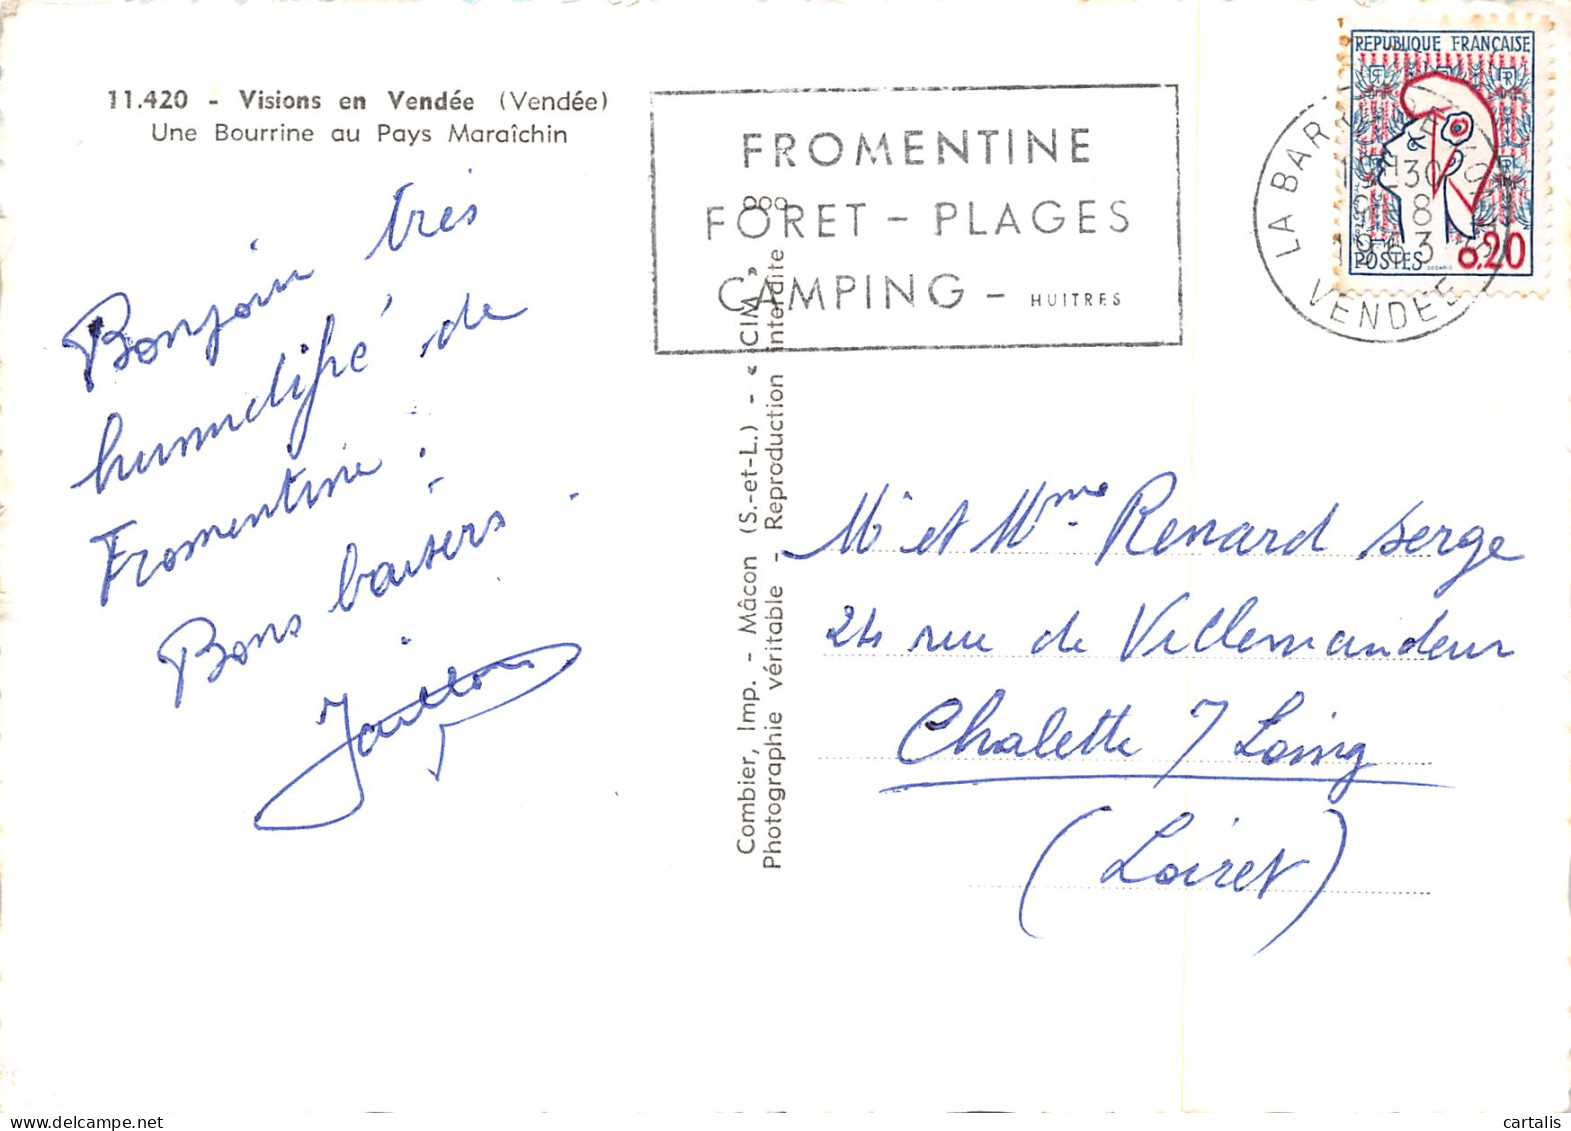 11.420 - Visions en Vendée (Vendée)
Une Bourrine au Pays Maraîchin
Bonjour très
humidifié de
Fromentine.
Bons baisers.
FROMENTINE
FORET - PLAGES
CAMPING - HUITRES
REPUBLIQUE FRANÇAISE
POSTES 0,20
LA BARRE DE MONTS
19H30
9-8
1963
VENDEE
Combier, Imp. - Mâcon (S.-et-L.) - « CIM »
Photographie véritable - Reproduction interdite
Mr et Mme Renard Serge
24 rue de Villemandeur
Chalette / Loing
(Loiret)
cartalis